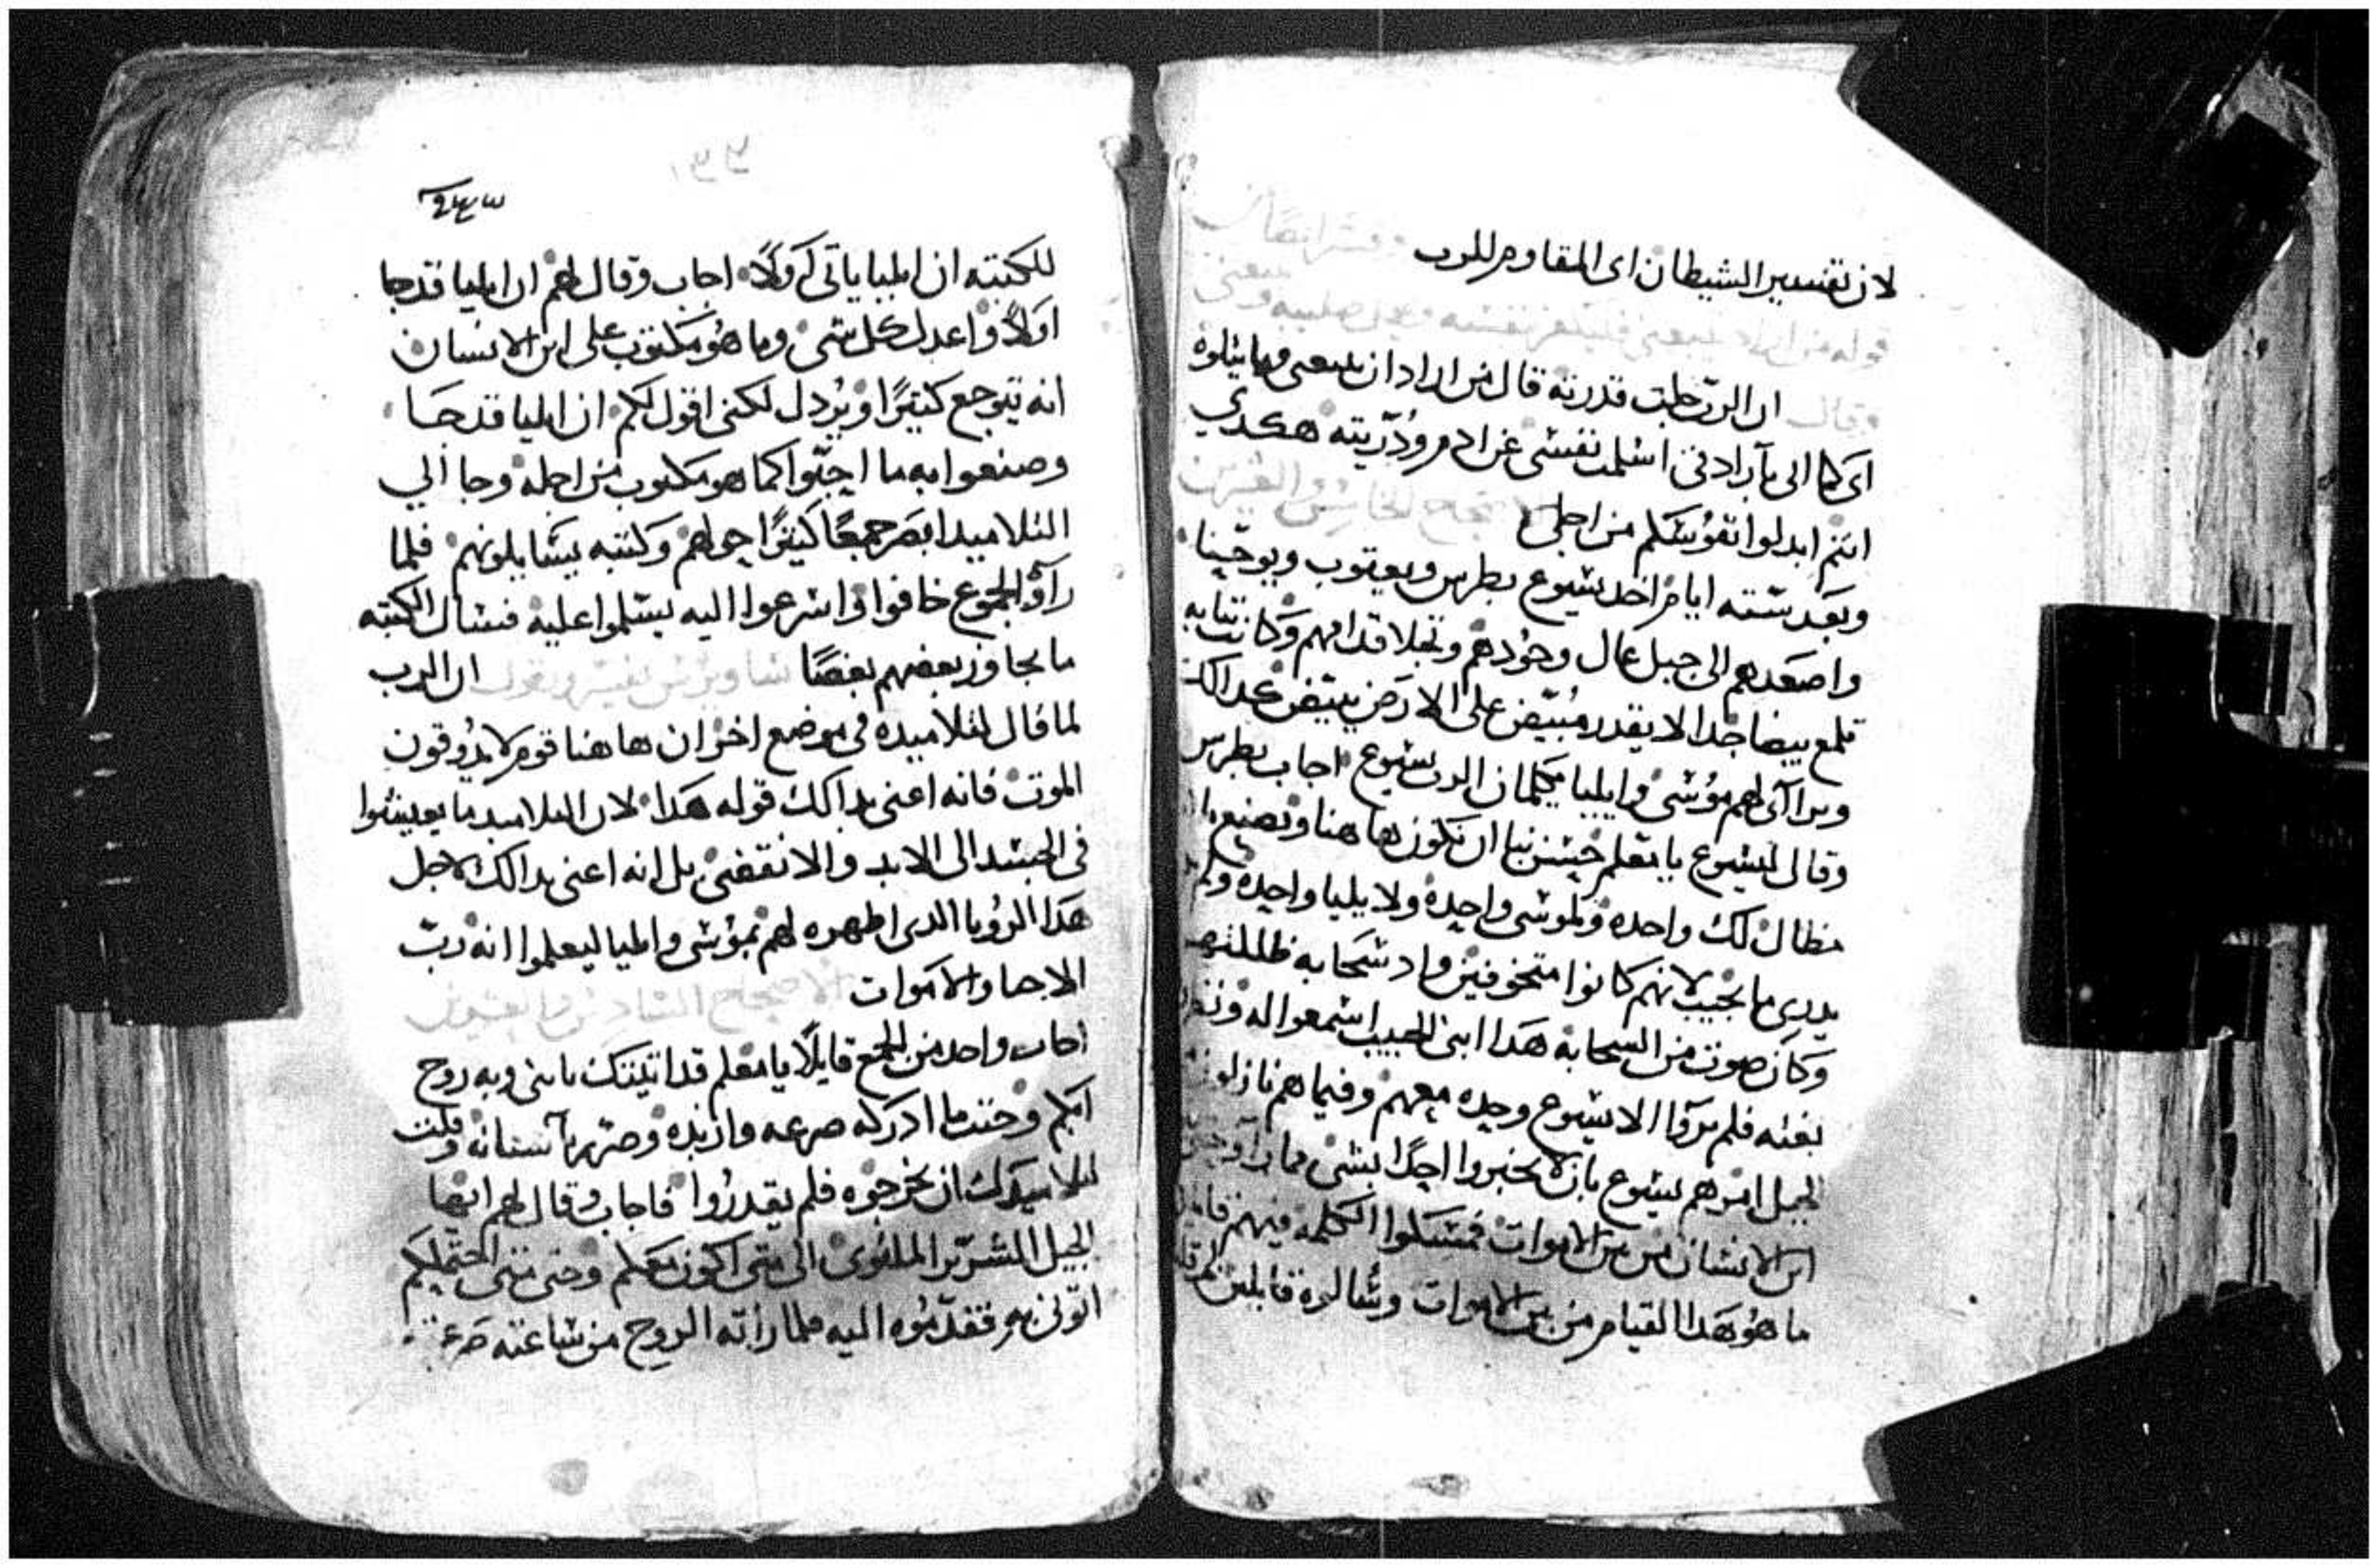 لان تفسير الشيطان اى المقاوم للرب
وفسر ايضا
قوله من اراد يتبعنى فليكفر بنفسه ويحمل صليبه ويتبعنى
وقال ان الرب جلت قدرته قال من اراد ان يتبعنى وما يتلوه
اى كما انى بآرادتى اسلمت نفسى عن ادم وذريته هكدى
انتم ابدلوا نفوسكم من اجلى الاصحاح الخامس والعشرين
وبعد سته ايام اخد يسوع بطرس ويعقوب ويوحنا
واصعدهم الى جبل عال وحودهم وتجلا قدامهم وكانت تيابه
تلمع بيضا جدا لا يقدر مبيض على الارض يبيض كدالك
وتراآى لهم موسى وايليا يكلمان الرب يسوع اجاب بطرس
وقال ليسوع يا معلم حسن بنا ان نكون ها هنا ونصنع
مظال لك واحده ولموسى واحده ولايليا واحده ولم
يدرى ما يجيب لانهم كانوا متخوفين واد سحابه ظللتهم
وكان صوت من السحابه هدا ابنى الحبيب اسمعوا له
بغته فلم يرآوا الا يسوع وحده معهم وفيما هم نازلون
الجبل امرهم يسوع بان لا يخبروا احدا بشى مما راو
ابن الانسان من بين الاموات فمسكوا الكلمه فيهم
ما هو هدا القيام من بين الاموات وسالوه قايلين لم
٢٤٣
للكتبه ان ايليا ياتى اولا اجاب وقال لهم ان ايليا قد جا
اولا واعدل كل شى وما هو مكتوب على ابن الانسان
انه يتوجع كتيرا ويردل لكنى اقول لكم ان ايليا قد جا
وصنعوا به ما احبوا كما هو مكتوب من اجله وجا الي
التلاميد ابصر جمعا كتيرا حولهم وكتبه يسايلونهم فلما
رآوه الجموع خافوا واسرعوا اليه يسلموا عليه فسال الكتبه
ما تجاوز بعضهم بعضا ساويرس يفسر ويقول ان الرب
لما قال لتلاميده فى موضع اخر ان ها هنا قوم لا يدوقون
الموت فانه اعنى بدالك قوله هدا لان التلاميد ما يعيشوا
فى الجسد الى الابد والانقضى بل انه اعنى بدالك لاجل
هدا الرويا الدى اظهره لهم بموسى وايليا ليعلموا انه رب
الاحيا والاموات الاصحاح السادس والعشرين
اجاب واحد من الجمع قايلا يا معلم قد اتيتك بابنى وبه روح
ابكم وحيتما ادركه صرعه وازبده وصرير باسنانه وقلت
لتلاميدك ان يخرجوه فلم يقدروا فاجاب وقال لهم ايها
الجيل الشرير الملتوى الى متى اكون معكم وحتى متى احتملكم
اتونى به فقدموه اليه فلما راته الروح من ساعته صرع